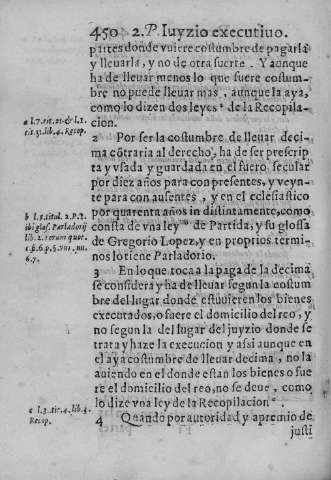 450 2. P. Iuyzio executiuo.
partes donde vuiere costumbre de pagarla
y lleuarla, y no de otra suerte. Y aunque
ha de lleuar menos lo que fuere costum-
bre no puede lleuar mas, aunque la aya,
como lo dizen dos leyes a de la Recopila-
cion.
a l.7. tit. 21. & l.2.
tit. 31. lib. 4. Recop.
2 Por ser la costumbre de lleuar deci-
ma cõtraria al derecho, ha de ser prescrip
ta y vsada y guardada en el fuero secular
por diez años para con presentes, y veyn-
te para con ausentes, y en el eclesiastico
por quarenta años indistintamente, como
consta de vna ley b de Partida, y su glossa
de Gregorio Lopez, y en proprios termi-
nos lo tiene Parladorio.
b l.5. titul. 2. P.1.
ibi glos. Parladorij
lib. 2. rerum quot.
6.7.
3 En lo que toca a la paga de la decima
se considera y ha de lleuar segun la costum
bre del lugar donde estuuieren los bienes
executados, o fuere el domicilio del reo, y
no segun la del lugar del juyzio donde se
trata y haze la execucion y assi aunque en
el aya costumbre de lleuar decima, no la
auiendo en el donde estan los bienes o fue
re el domicilio del reo, no se deue, como
lo dize vna ley de la Recopilacion c.
c l.3. tit. 4. lib. 4.
Recop.
4 Quando por autoridad y apremio de
justi